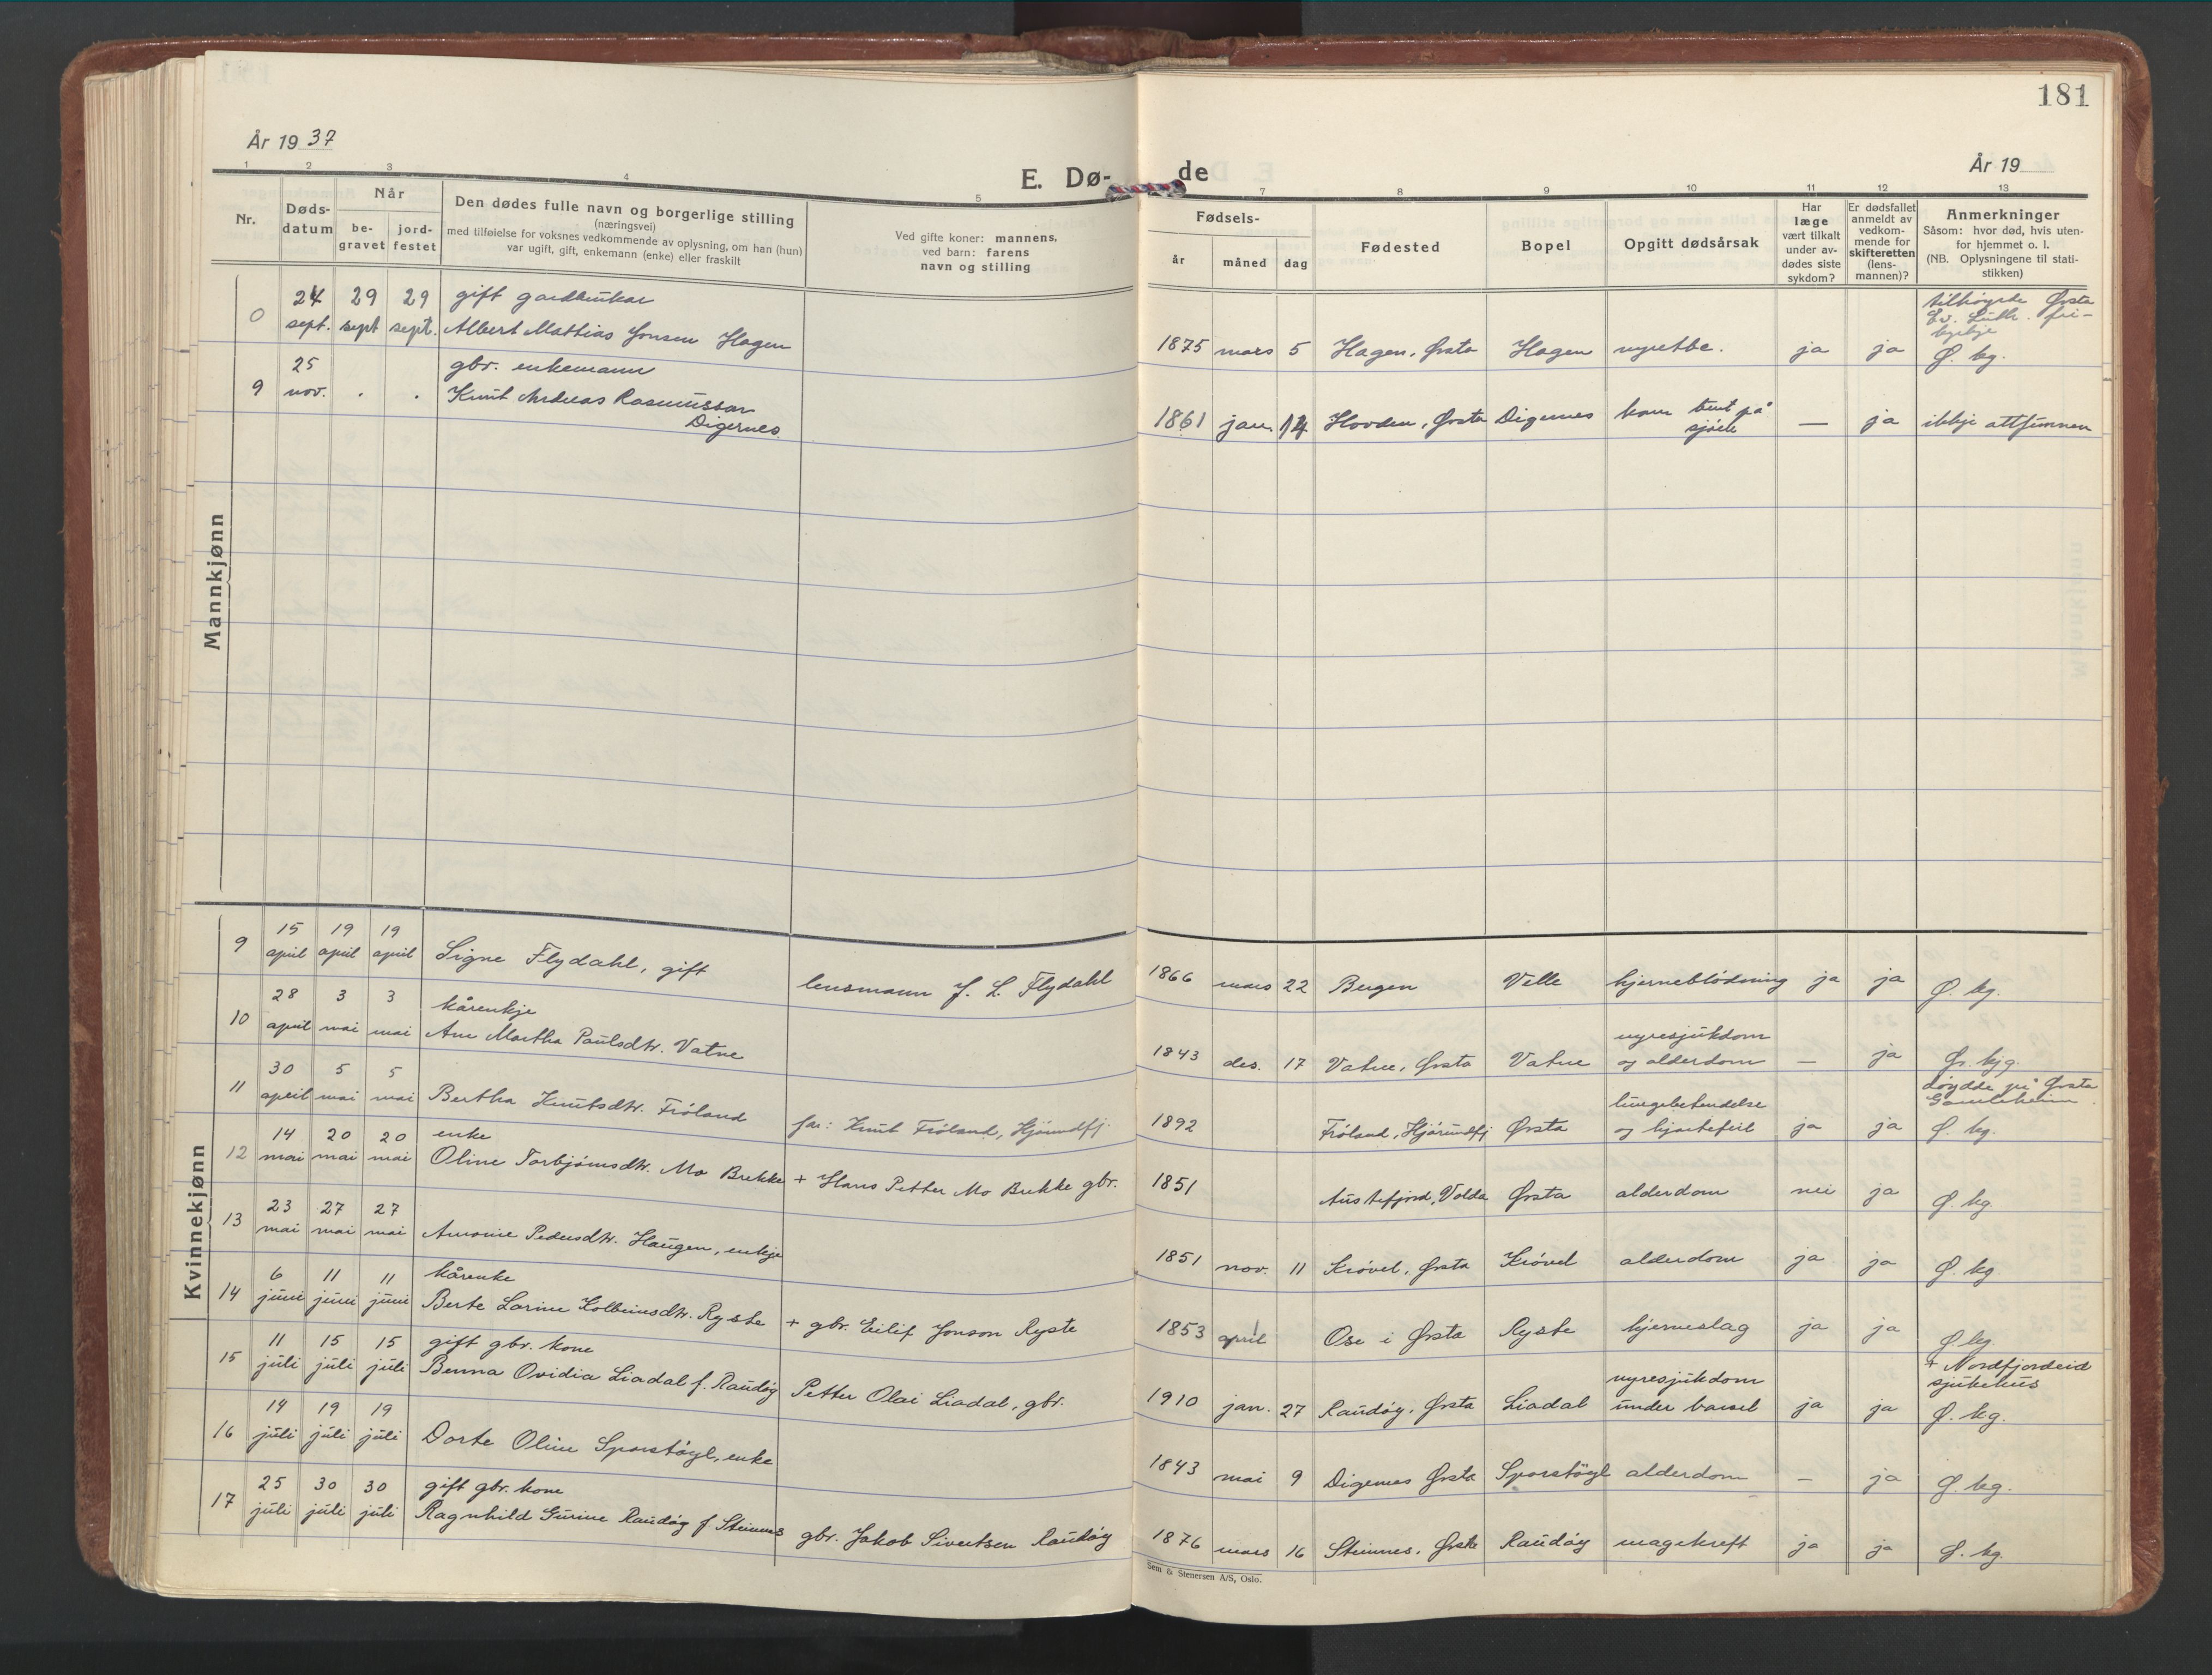 181
År 19 37
År 19
E. Dø- de
1 2 3 4 5 7 8 9 10 11 12 13
Nr.
Døds-
datum
Når
be-
gravet
jord-
festet
Den dødes fulle navn og borgerlige stilling
(næringsvei)
med tilføielse for voksnes vedkommende av oplysning, om han (hun)
var ugift, gift, enkemann (enke) eller fraskilt
Ved gifte koner: mannens,
ved barn: farens
navn og stilling
Fødsels-
år måned dag
Fødested
Bopel
Opgitt dødsårsak
Har
læge
vært tilkalt
under av-
dødes siste
sykdom?
Er dødsfallet
anmeldt av
vedkom-
mende for
skifteretten
(lens-
mannen)?
Anmerkninger
Såsom: hvor død, hvis uten-
for hjemmet o. l.
(NB. Oplysningene til stati-
stikken)
Mannkjønn
24 29 29 gift gardbrukar tilhøyrde Ørsta
Ev. Luth. fri-
kyrkje
0 sept. sept sept. Albert Mattias Jonsen Hagen 1875 mars 5 Hagen, Ørsta Hagen nyretbc. ja ja Ø. kg.
25 gbr. enkemann
9 nov. . . Knut Andreas Rasmussen
Digernes
1861 jan. 14 Hovden, Ørsta Digernes kom burt på
sjøen — ja ikkje attfunnen
Kvinnekjønn
15 19 19
9 april april april Signe Flydahl, gift lensmann J. L. Flydahl 1866 mars 22 Bergen Velle hjerneblödning ja ja Ø. kg.
28 3 3 kårenkje nyresjukdom
10 april mai mai Ane Martha Paulsdtr. Vatne 1843 des. 17 Vatne, Ørsta Vatne og alderdom — ja Ør. kjg.
30 5 5 lungebetendelse Döydde på Ørsta
Gamleheim.
11 april mai mai Bertha Knutsdtr. Fröland far: Knut Fröland, Hjörundfj. 1892 Fröland, Hjörundfj Ørsta og hjartefeil ja ja Ø. kg.
14 20 20 enke
12 mai mai mai Oline Torbjörnsdtr. Mo Brekke + Hans Petter Mo Brekke gbr. 1851 Austefjord, Volda Ørsta alderdom nei ja Ø. kg.
23 27 27
13 mai mai mai Amonie Pedersdtr. Haugen, enkje 1851 nov. 11 Krövel, Ørsta Krövel alderdom ja ja Ø. kg.
6 11 11 kårenke
14 juni juni juni Berte Larine Kolbeinsdtr. Ryste + gbr. Eilif Jonson Ryste 1853 april 1 Ose i Ørsta Ryste hjerneslag ja ja Ø kg.
11 15 15 gift gbr. kone nyresjukdom + Nordfjordeid
sjukehus
15 juli juli juli Benna Ovidia Liadal f. Raudöy Petter Olai Liadal, gbr. 1910 jan. 27 Raudöy, Ørsta Liadal under barsel ja ja Ø. kg.
14 19 19
16 juli juli juli Dorte Oline Sporstöyl, enke 1843 mai 9 Digernes Ørsta Sporstöyl alderdom — ja Ø. kg.
25 30 30 gift gbr. kone
17 juli juli juli Ragnhild Gurine Raudöy f Steinnes gbr. Jakob Sivertsen Raudöy 1876 mars 16 Steinnes, Ørsta Raudöy magekreft ja ja Ø. kg.
Sem & Stenersen A/S, Oslo.